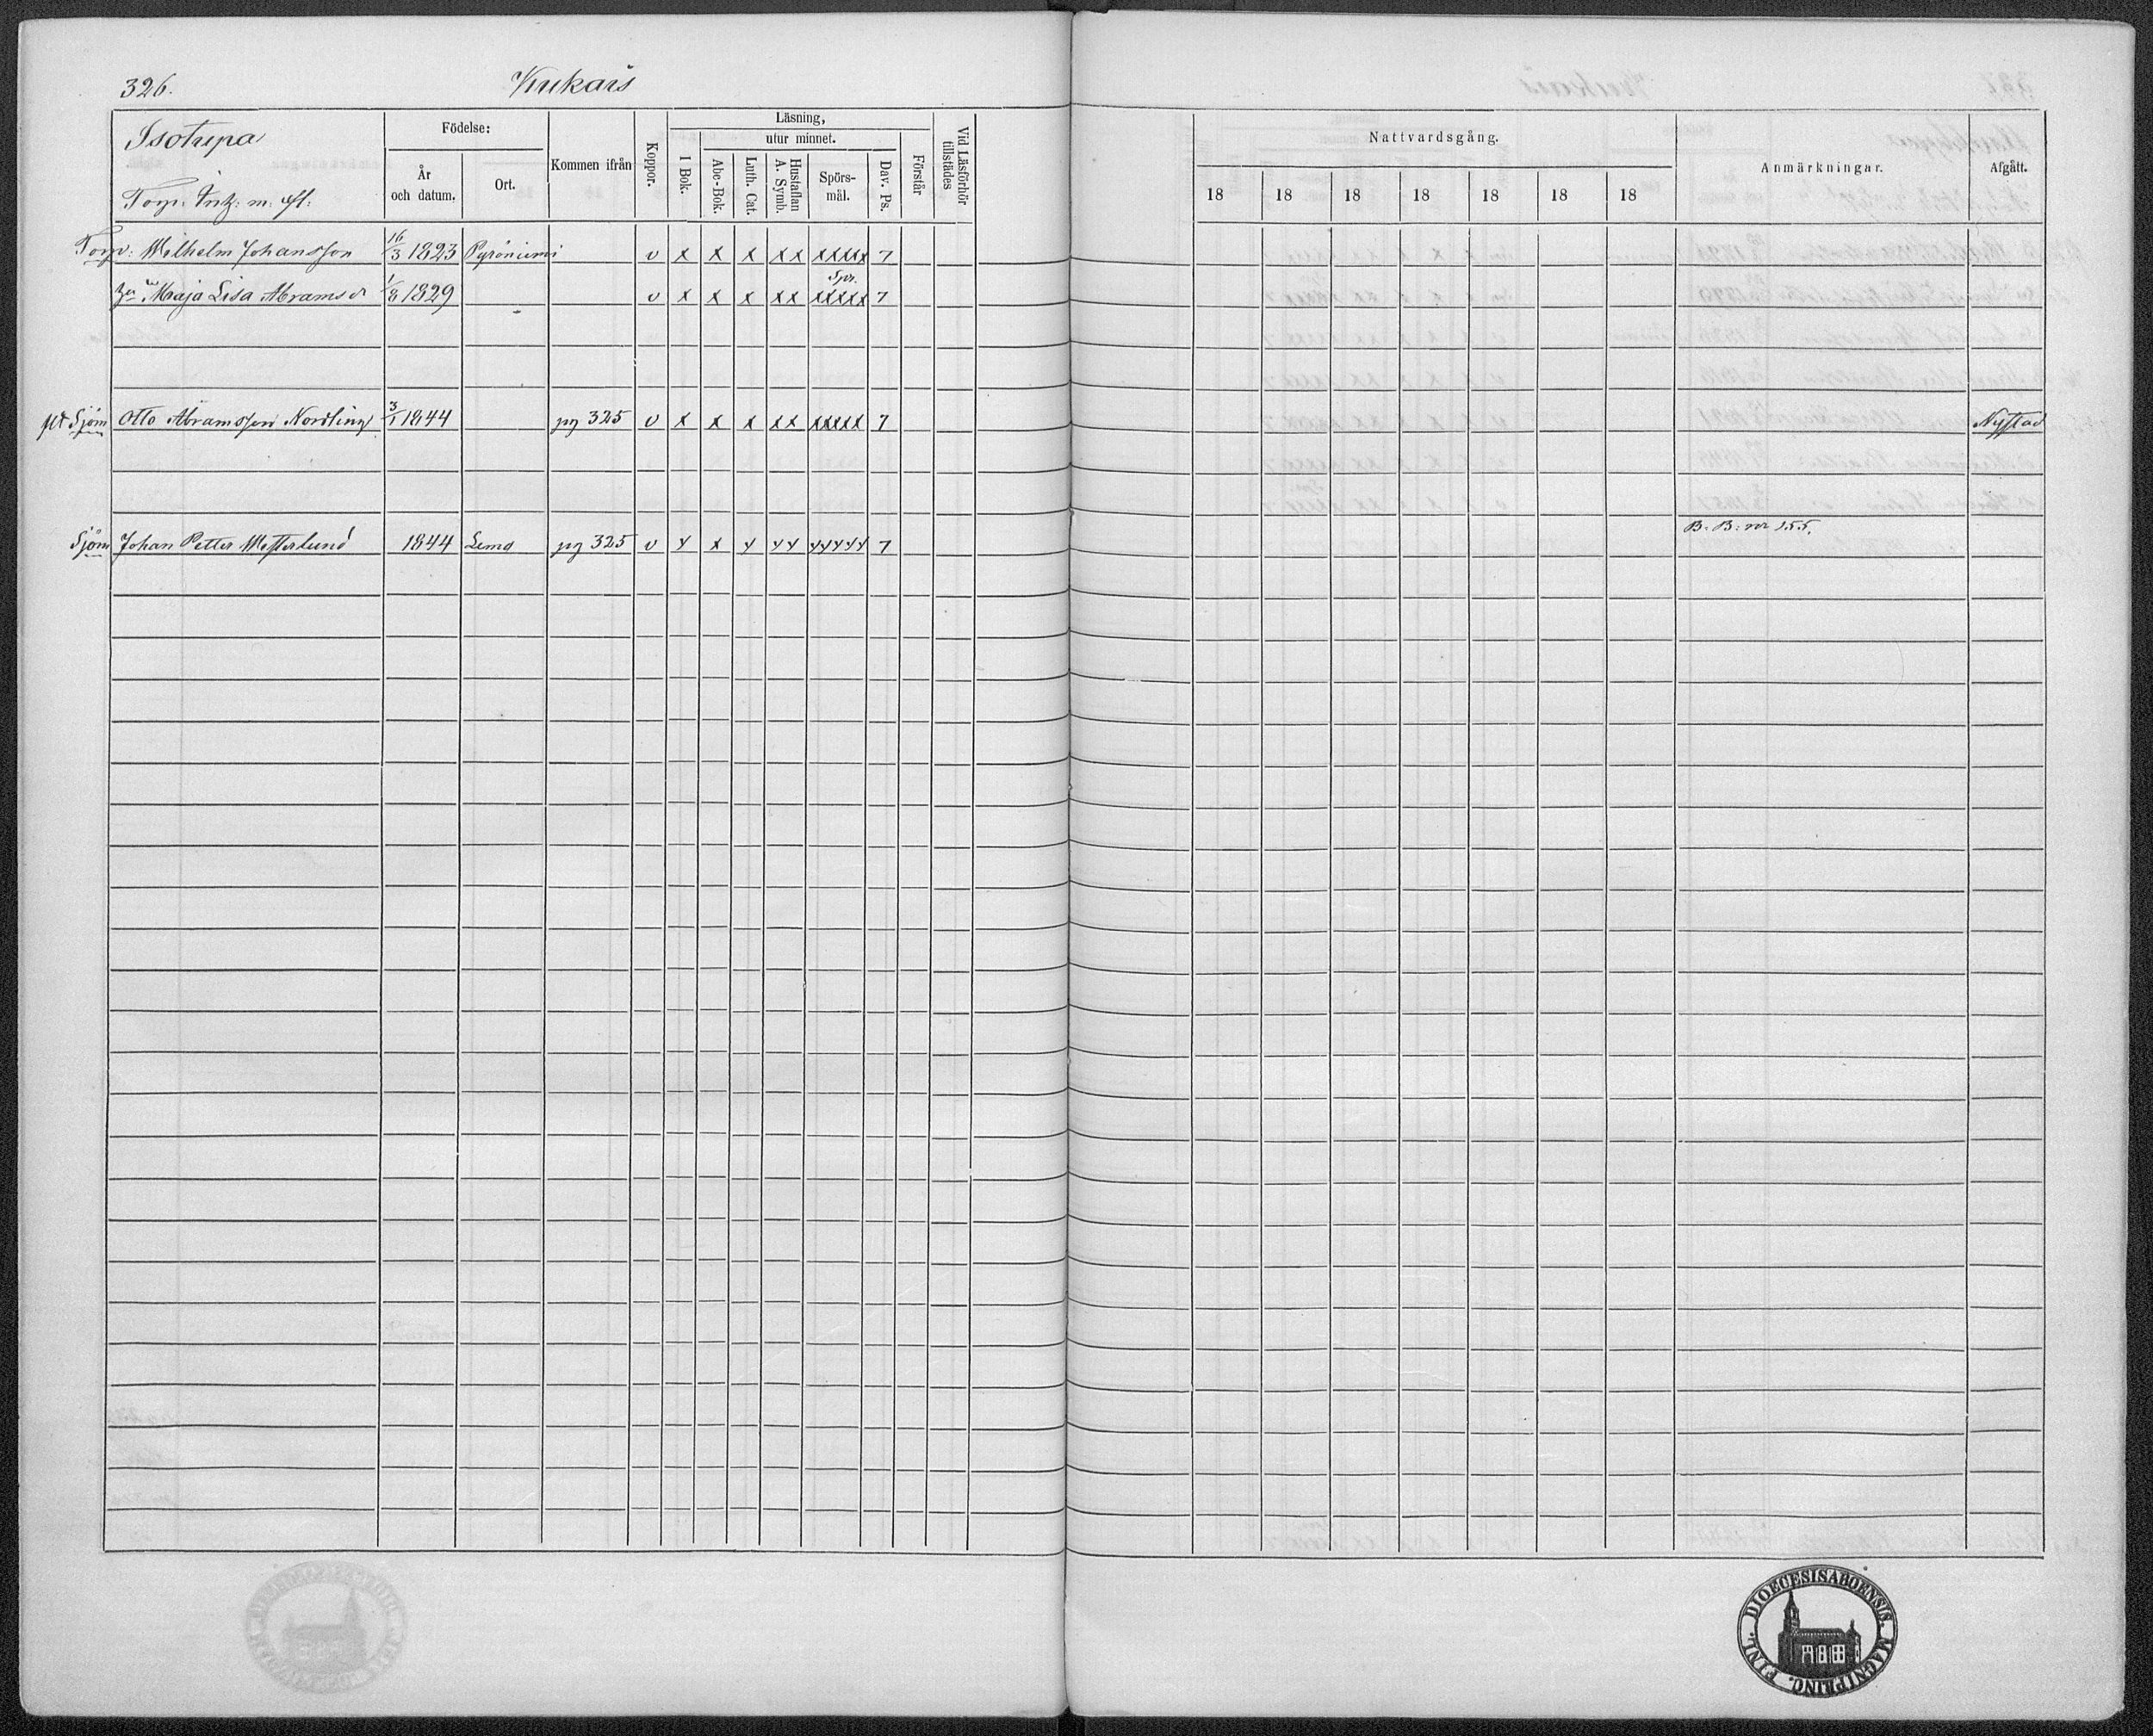 326.
Kukais
Isotupa
Torp. Intz: m. fl:
Födelse:
År
och datum.
Ort.
Kommen ifrån
Koppor.
Läsning,
utur minnet.
I Bok.
Abc-Bok.
Luth. Cat.
Hustaflan
A. Symb.
Spörs-
mål.
Dav. Ps.
Förstår
Vid Läsförhör
tillstädes
Nattvardsgång.
18 18 18 18 18 18 18
Anmärkningar.
Afgått.
Torp: Wilhelm Johansson 16/3 1823 v x x x xx xxxxx 7
Spr.
Maja Lisa Abramsdr 1/8 1829 v x x x xx xxxxx 7
Sjöm Otto Abramsson Nordling 3/1 1844 pg 325 v x x x xx xxxxx 7 Nystad
B: B: nr 155.
Sjöm Johan Petter Westerlund 1844 Lemo pg 325 v x x x xx xxxxx 7
DIOECESIS ABOENSIS. MAGNI PRINC. FINL.